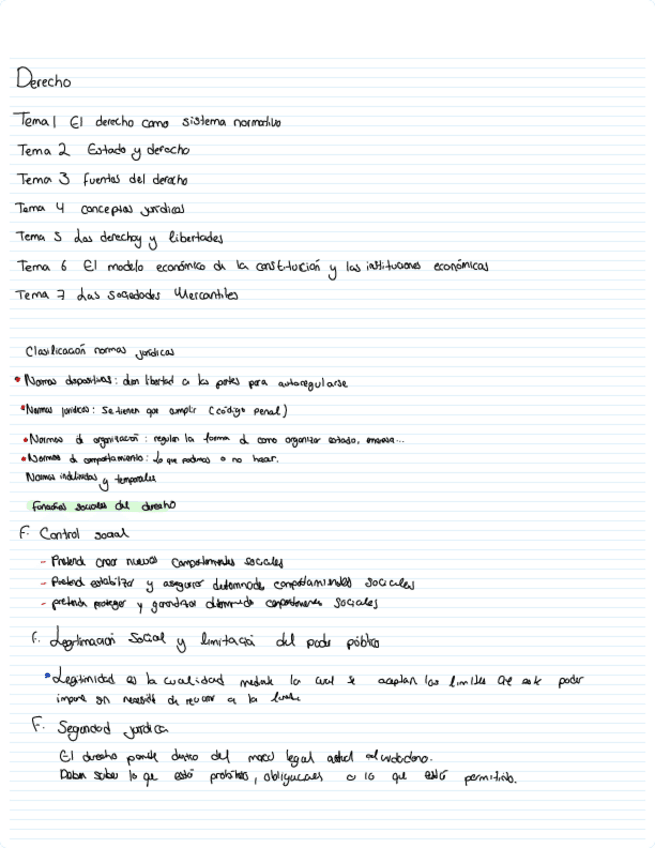 Derecho
Tema 1 El derecho como sistema normativo
Tema 2 Estado y derecho
Tema 3 fuentes del derecho
Tema 4 conceptos jurídicos
Tema 5 Los derechos y libertades
Tema 6 El modelo económico de la constitución y las instituciones económicas
Tema 7 Las Sociedades Mercantiles
Clasificación normas jurídicas
• Normas dispositivas: dan libertad a las partes para autoregularse
• Normas jurídicas: Se tienen que cumplir (código penal)
• Normas d organización: regulan la forma d como organizar estado, empresa...
• Normas d comportamiento: lo que podemos o no hacer.
Normas indefinidas y temporales
Funciones sociales del derecho
F. Control social
- Pretende crear nuevos comportamientos sociales
- Pretende estabilizar y asegurar determinados comportamientos sociales
- pretende proteger y garantizar determinado comportamientos sociales
F. Legitimación Social y limitación del poder público
• Legitimidad es la cualidad mediante la cual se aceptan los límites que este poder
impone sin necesidad de recurrir a la fuerza
F. Seguridad jurídica
El derecho dentro del marco legal
Deben saber lo que está prohibido, obligaciones o lo que está permitido.